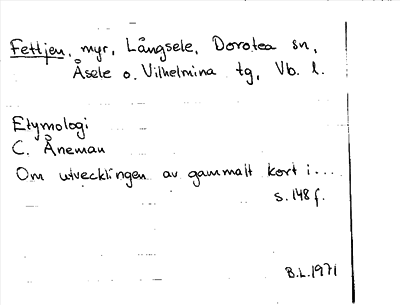 Fettjen, myr, Långsele, Dorotea sn,
Åsele o. Vilhelmina tg, Vb. l.
Etymologi
C. Åneman
Om utvecklingen av gammalt kort i....
s. 148 f.
B.L. 1971